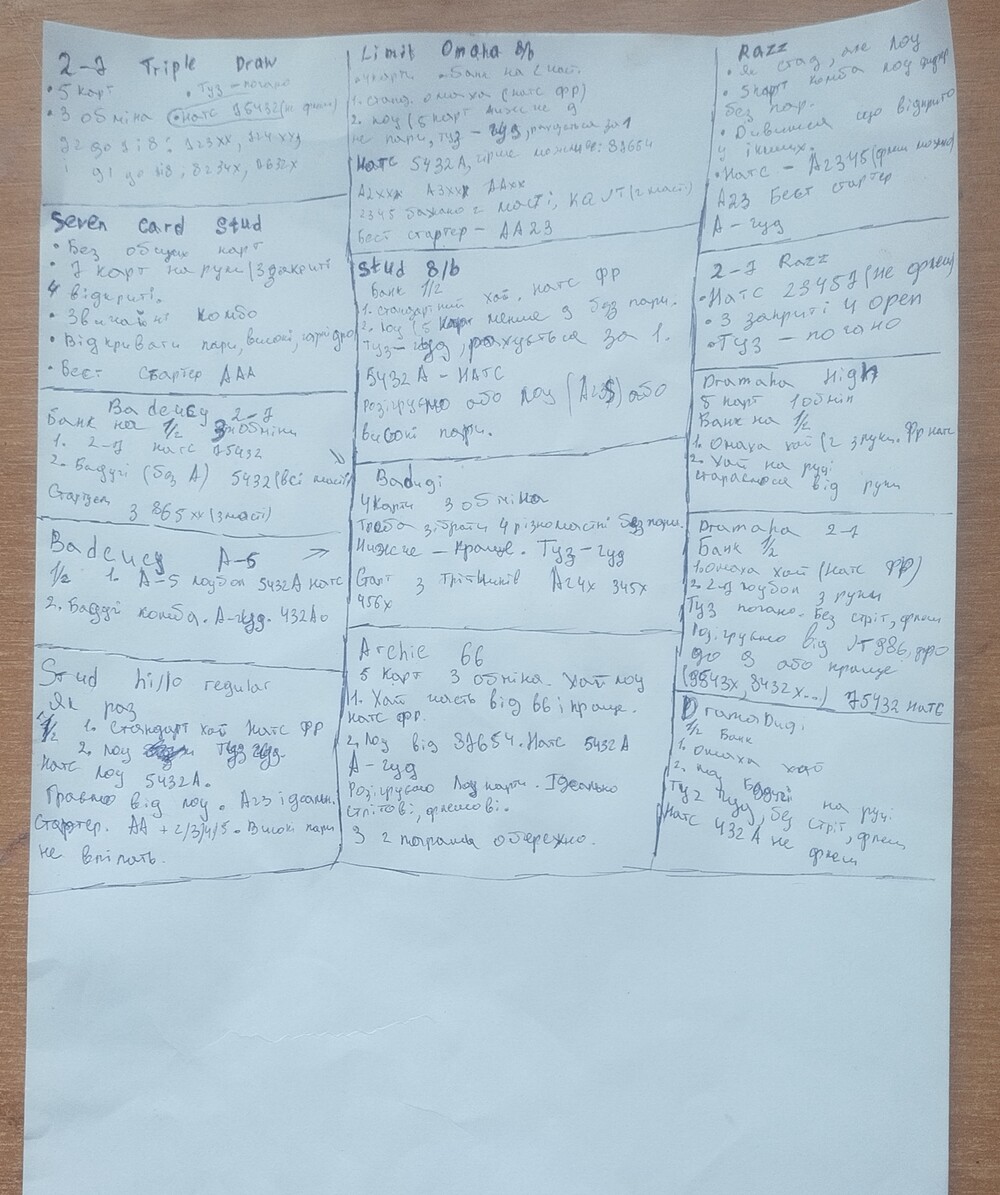 2-7 Triple Draw
• 5 карт • Туз - погано
• 3 обміна • Натс 75432 (не флеш)
Seven Card Stud
• Без общих карт
• 7 карт на руки (3 закриті
4 відкриті.
• Звичайні комбо
• Відкривати пари, високі,
• Бест Стартер AAA
Badeucy 2-7
Банк на 1/2 3 обміни
1. 2-7 натс 75432
2. Бадугі (без А) 5432 (всі масті)
Стартуем
з 865xx (3 масті)
Badeucy A-5
1/2 1. A-5 лоубол 5432A натс
2. Бадугі комба. А-гуд. 432A
Stud hi/lo regular
Як раз
1/2 1. Стандарт хай натс ФР
2. лоу Туз гуд.
Натс лоу 5432A.
Граємо від лоу. A23 ідеальн.
Стартер. AA + 2/3/4/5. Високі пари
не впірать.
Limit Omaha 8/b
4 карти Банк на 2 част.
1. станд. омаха (натс ФР)
2. лоу (5 карт нижче 9
не пари, туз - гуд, рахується за 1
Натс 5432A, гірше можливе: 87654
A2xx A3xx AAxx
2345 бажано 2 масті, KQJT (2 масті)
Бест стартер - AA23
Stud 8/b
Банк 1/2
1. стандартний хай. натс ФР
2. лоу (5 карт менше 9 без пари.
Туз - гуд, рахується за 1.
5432A - НАТС
розігруємо або лоу (A23) або
високі пари.
Бадугі
4 карти 3 обміна
Треба зібрати 4 різномастні без пари.
Нижче - краще. Туз - гуд
Старт з трітників A24x 345x
456x
Archie 66
5 карт 3 обміна. хай лоу
1. Хай часть від 66 і краще.
натс ФР.
2. Лоу від 87654. Натс 5432A
А - гуд
Розігруємо Лоу карти. Ідеально
стрітові, флешові.
З 2 парами обережно.
Razz
• Як стад, але лоу
• 5 карт комба лоу
без пар.
• Дивимся що відкрито
у інших.
• Натс - A2345 (флеш можно)
A23 Бест стартер
А - гуд
2-7 Razz
• Натс 23457 (не флеш)
• 3 закриті 4 open
• Туз - погано
Dramaha High
5 карт 1 обмін
Банк на 1/2
1. Омаха хай (2 з руки. ФР натс
2. Хай на руці
стараємося від руки
Dramaha 2-7
Банк 1/2
1. Омаха хай (натс ФР)
2. 2-7 лоубол з руки
Туз погано. Без стріт, флеш
Розігруємо від JT986, дро
до 9 або краще
(9843x, 8432x...) 75432 натс
DramaDugi
1/2 Банк
1. Омаха хай
2. лоу Бадугі на руці.
Туз гуд, без стріт, флеш
Натс 432A не
флеш